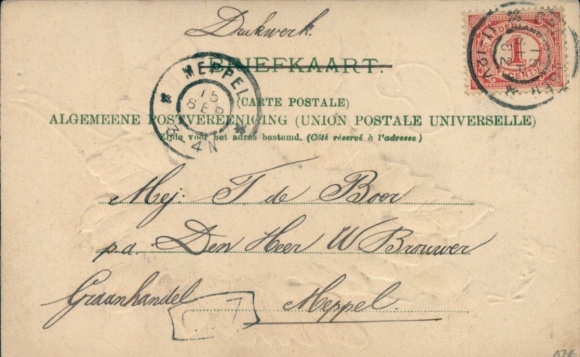 Drukwerk.
BRIEFKAART.
(CARTE POSTALE)
ALGEMEENE POSTVEREENIGING (UNION POSTALE UNIVERSELLE)
Zijde voor het adres bestemd. (Côté réservé à l'adresse)
MEPPEL
15
SEP
4 N
NEDERLAND
1
CENT
Mej. T de Boer
p.a. Den Heer W Brouwer
Graanhandel Meppel